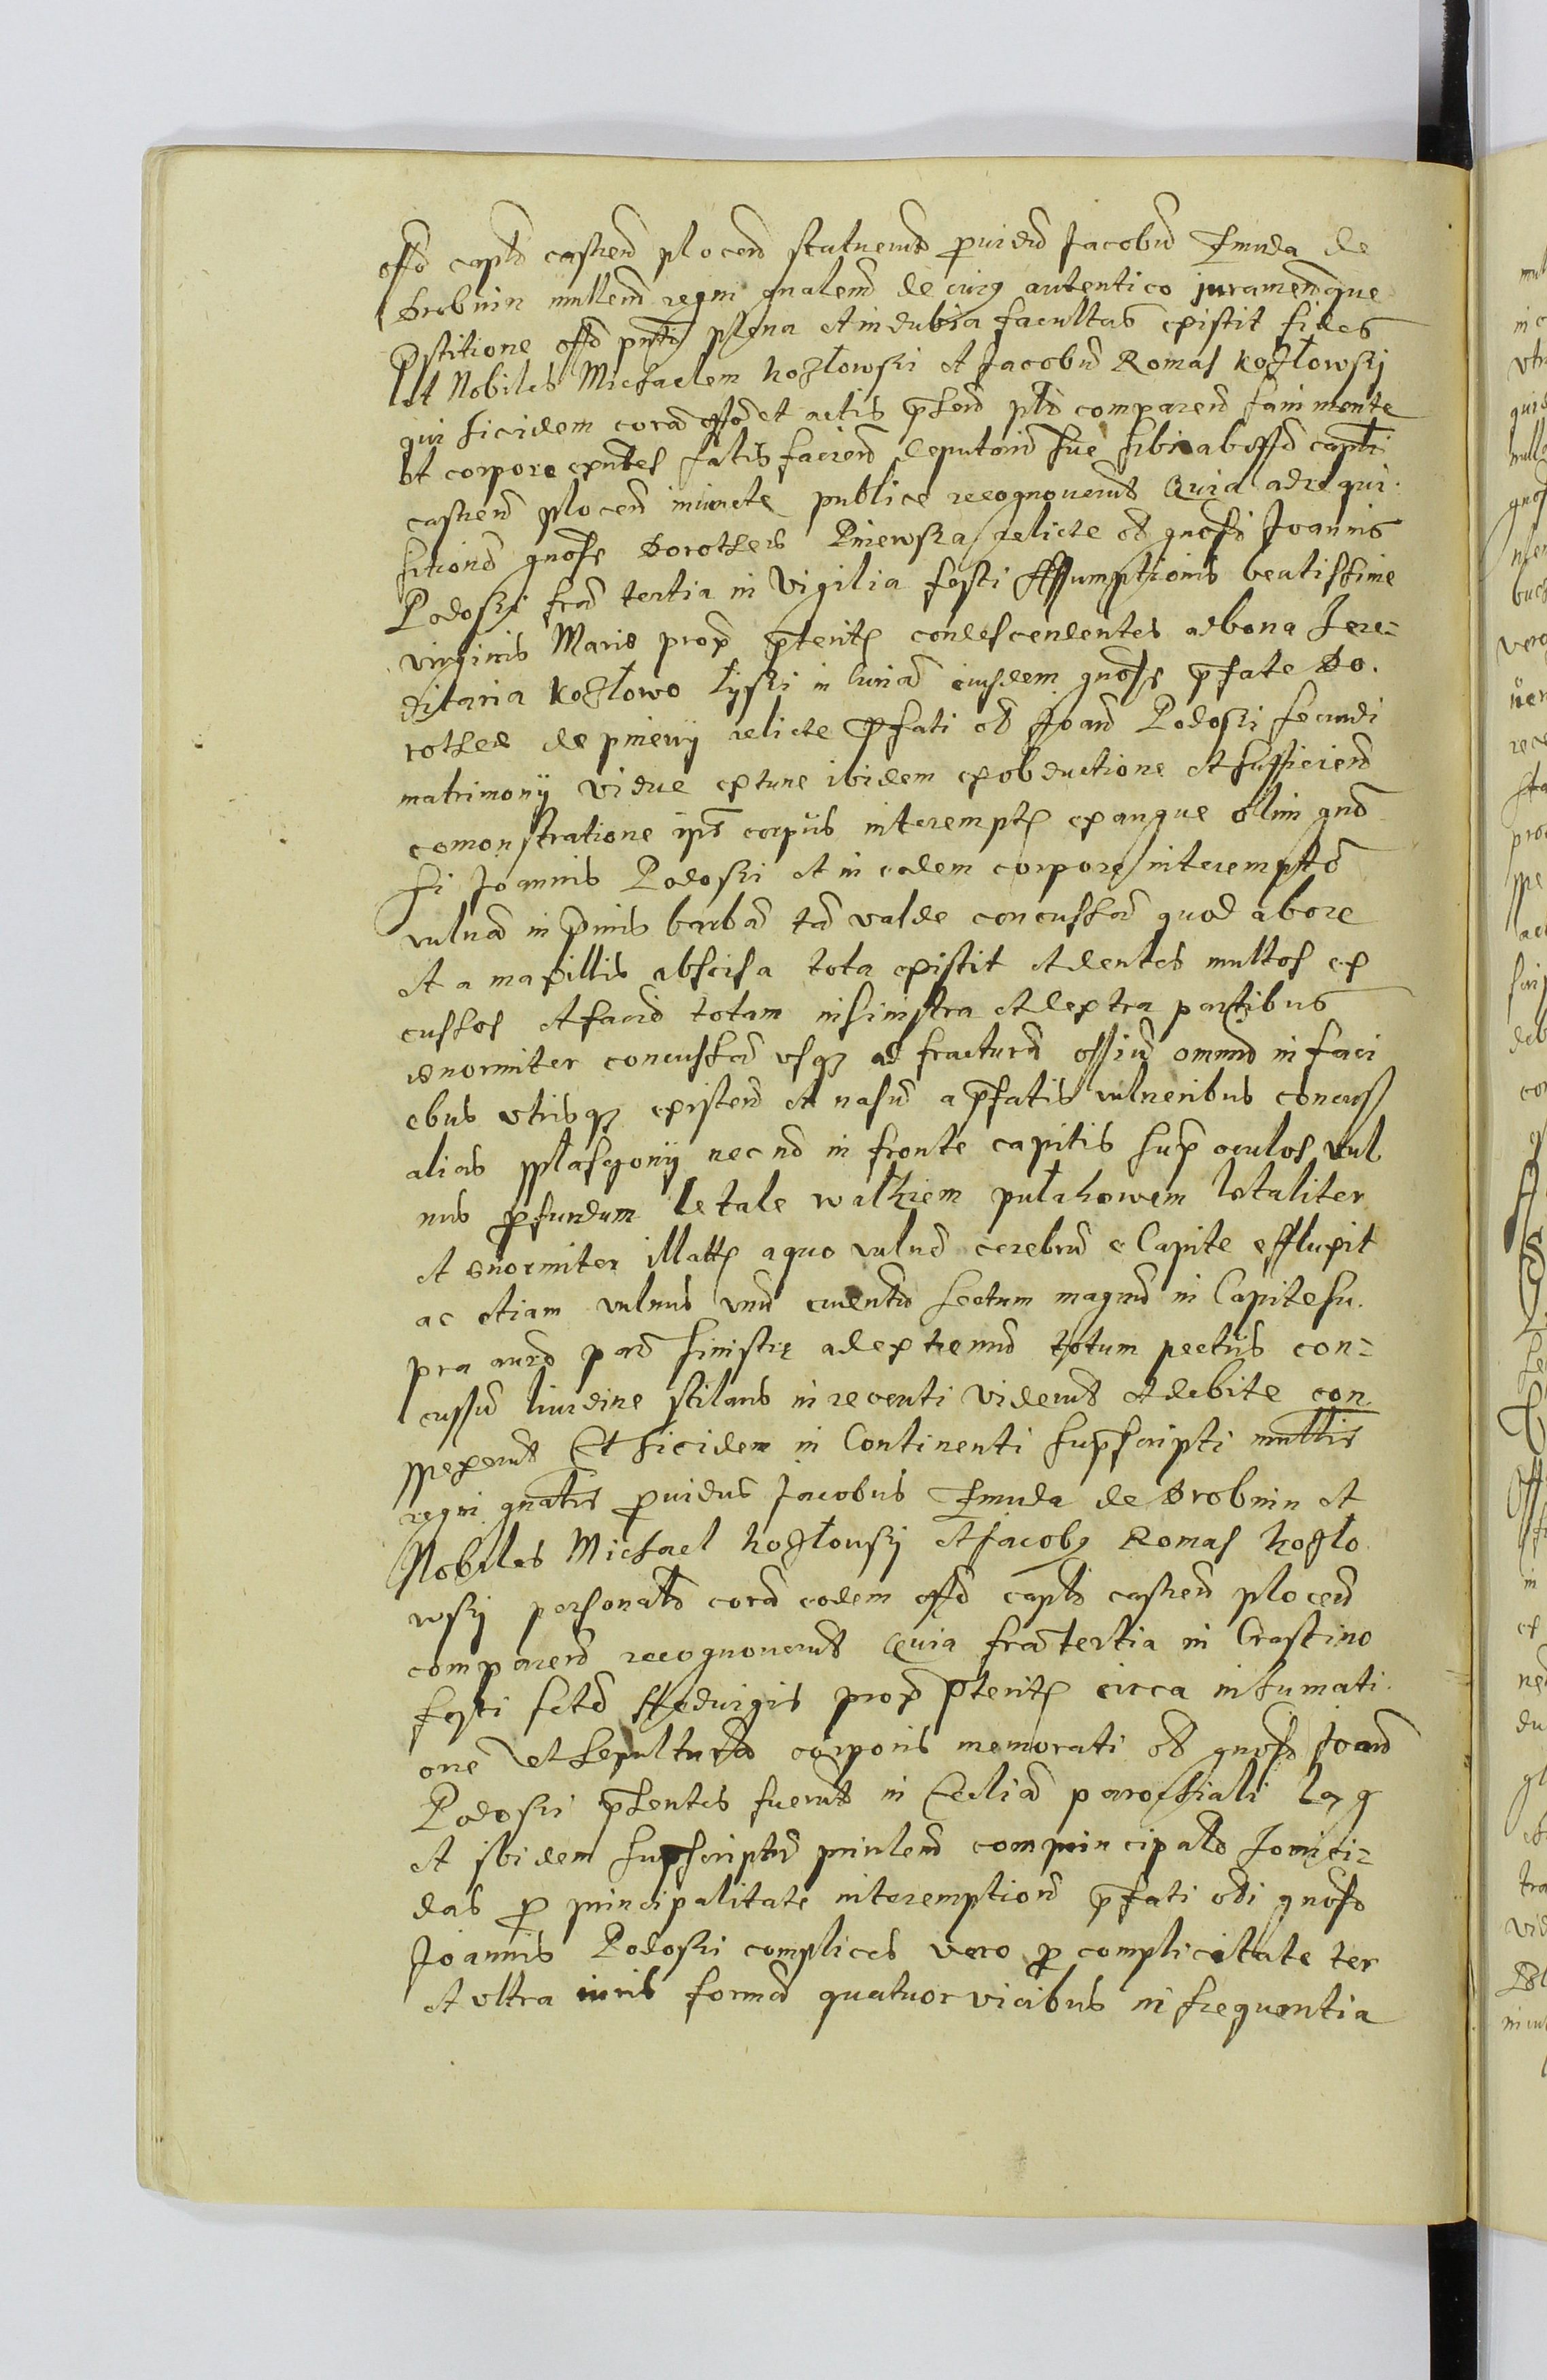 offo capto castren plocen statuerunt prouidum Jacobum Fmuda de
Drobnin mllem regni gnalem de cuius autentico juramenque
prestitione offo pnti plena et indubia facultas existit fides
et Nobiles Michaelem Kozłowski et Jacobum Romas Kozłowskj
qui siquidem coram offo et actis pnsen pld comparen sani mente
et corpore exntes satisfacien deputaoni sue sibi ab offo capti
castren plocen iniuncte publice recognouerunt Quia ad requi-
sitionem gnose Dorothee Pniewska relicte od gnosi Joannis
Podoski fra tertia in Vigilia festi Assumptionis beatissime
virginis Marie prox preterit condescendentes ad bona here=
ditaria Kozłowo Łyski in Curiam eiusdem gnose prefate Do-
rothee de pniewy relicte prefati od Joan Podoski secundi
matrimonij vidue extunc ibidem ex obductione et sufficien
comonstratione ipsis corpus interempt exangue olim gno
si Joannis Podoski et in eodem corpore interempto
vulnera in primis barbam tam valde concussam quod ab ore
et a maxillis abscisa tota existit et dentes multos ex
cussos et faciem totam in sinistra et dextra partibus
enormiter concussam usque ad fracturam ossium omnium in faci
ebus utrisque existen et nasum a prefatis vulneribus concuss
alias splasczony nec no in fronte capitis supra oculos vul
nus profundum letale walkiem pułahowem letaliter
et enormiter illatt a quo vulnere cerebrum e Capite effluxit
ac etiam vulnus unum cruentum sectum magnum in Capite su-
pra aurem parte sinistre ad extremum totum pectus con=
cussum liuidine stilans in recenti viderunt et debite con
spexerunt Et siquidem in Continenti suprascripti mllis
regni gnalis prouidus Jacobus Fmuda de Drobnin et
Nobiles Michael Kozłouskj et Jacobus Romas Kozło
wskj personalr coram eodem offo capto castren plocen
comparen recognouerunt Quia fra tertia in Crastino
festi scte Heduigis prox preterit circa inhumati-
onem et sepulturam corporis memorati od gnosi Joan
Podoski presentes fuerunt in Ecclia parochiali
et ibidem suprascriptum principalem comprincipales homici=
das pro principalitate interemptionis prefati odi gnosi
Joannis Podoski complices vero pro complicitate ter
et ultra iuris formam quatuor vicibus in frequentia